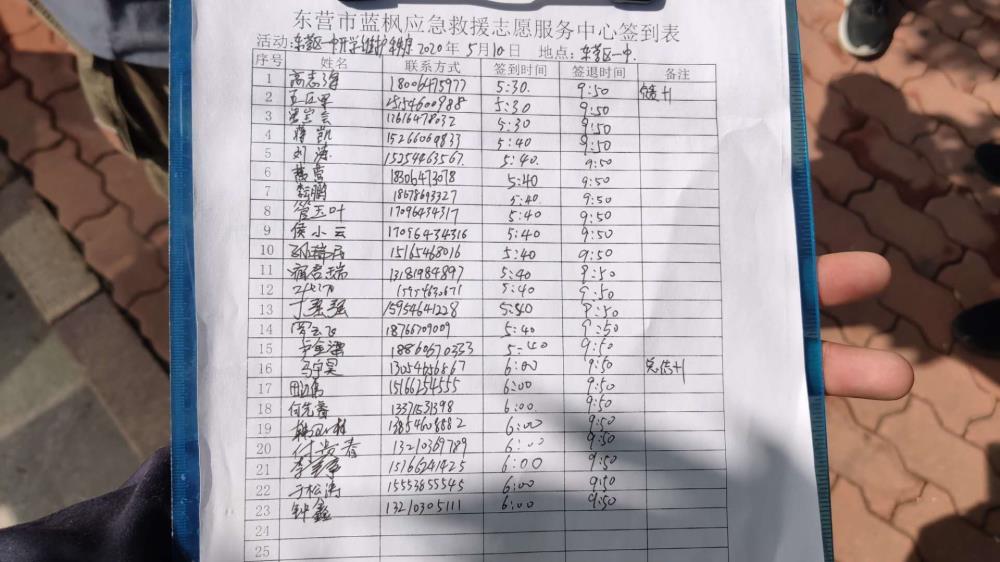 东营市蓝枫应急救援志愿服务中心签到表
活动:东营区一中开学维护秩序 2020年 5月10日 地点:东营区一中.
序号 姓名 联系方式 签到时间 签退时间 备注
1 高志海 18006475977 5:30. 9:50
2 5:30 9:50
3 5:30 9:50
4 蒋凯 15266069833 5:40 9:50
5 刘涛 15254463567. 5:40. 9:50
6 18306473078 5:40 9:50
7 18678693327 5:40 9:50
8 管玉叶 17096434317 5:40 9:50
9 侯小云 17096434316 5:40 9:50
10 15165468016 5:40 9:50
11 13181984897 5:40 9:50
12 15954630671 5:40 9:50
13 丁强强 15954641228 5:40 9:50
14 18766709009 5:40 9:50
15 5:40 9:50
16 马宇昊 13054656867 6:00 9:50
17 15166254555 6:00 9:50
18 何先春 13371531398 6:00. 9:50
19 13854608882 6:00 9:50
20 付贵春 13210369789 6:00 9:50
21 15766241425 6:00 9:50
22 于松涛 15553655545 6:00 9:50
23 钟鑫 13210305111 6:00 9:50
24
25